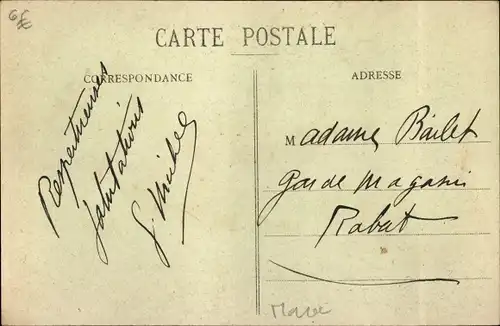 6€
CARTE POSTALE
CORRESPONDANCE
Respectueuses
salutations
G. Michel
ADRESSE
Madame Bailet
Garde Magasin
Rabat
Maroc